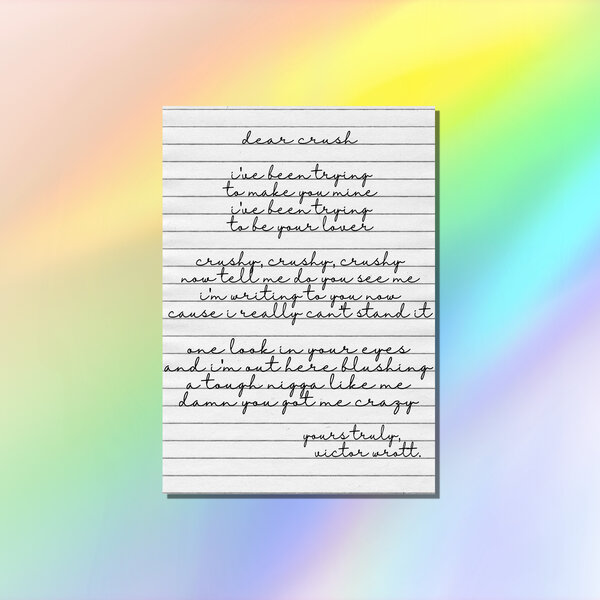 dear crush
i've been trying
to make you mine
i've been trying
to be your lover
crushy, crushy, crushy
now tell me do you see me
i'm writing to you now
cause i really can't stand it
one look in your eyes
and i'm out here blushing
a tough nigga like me
damn you got me crazy
yours truly,
victor wrott.